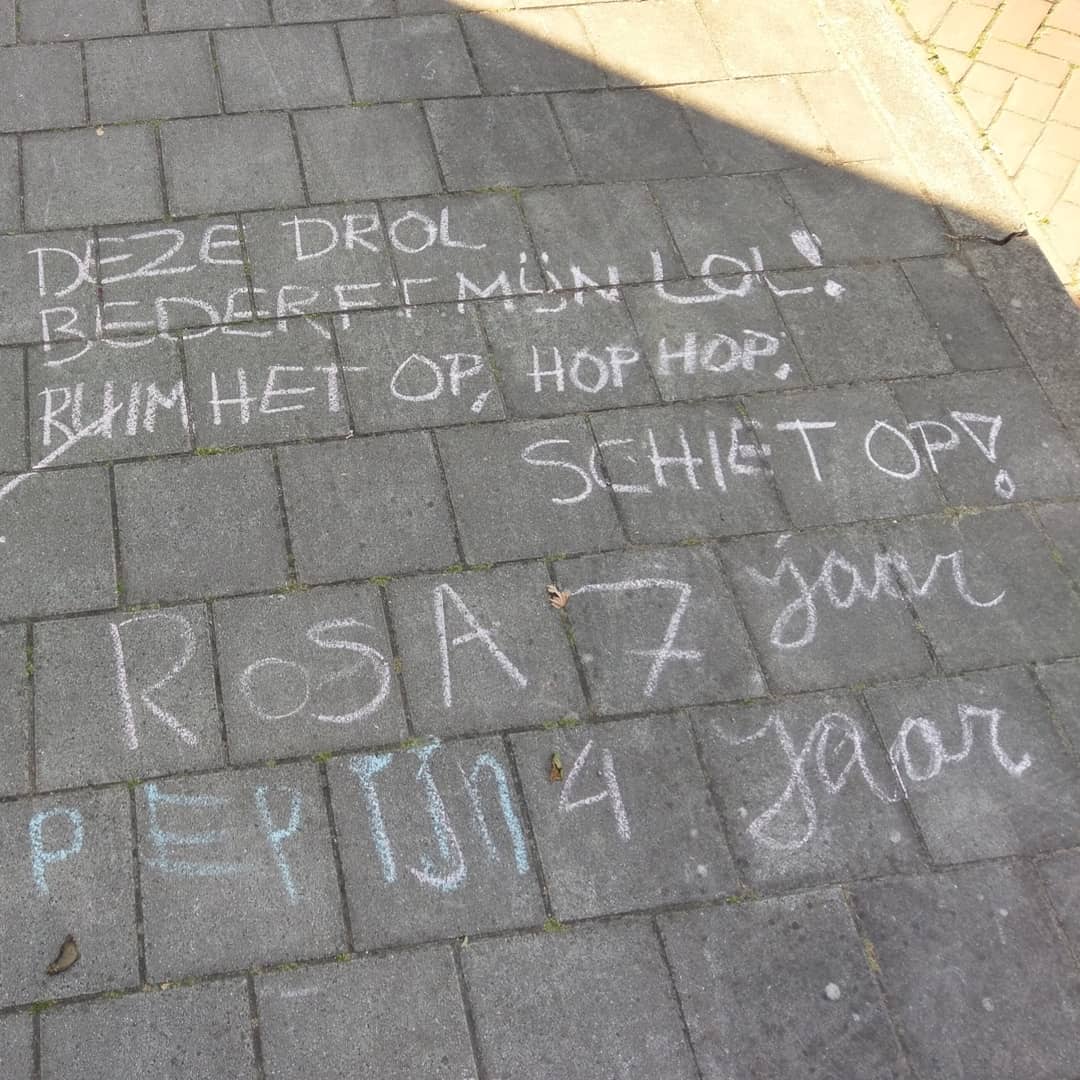 DEZE DROL
BEDERFT MIJN LOL!
RUIM HET OP, HOP HOP,
SCHIET OP!
ROSA 7 jaar
PEPIJn 4 jaar